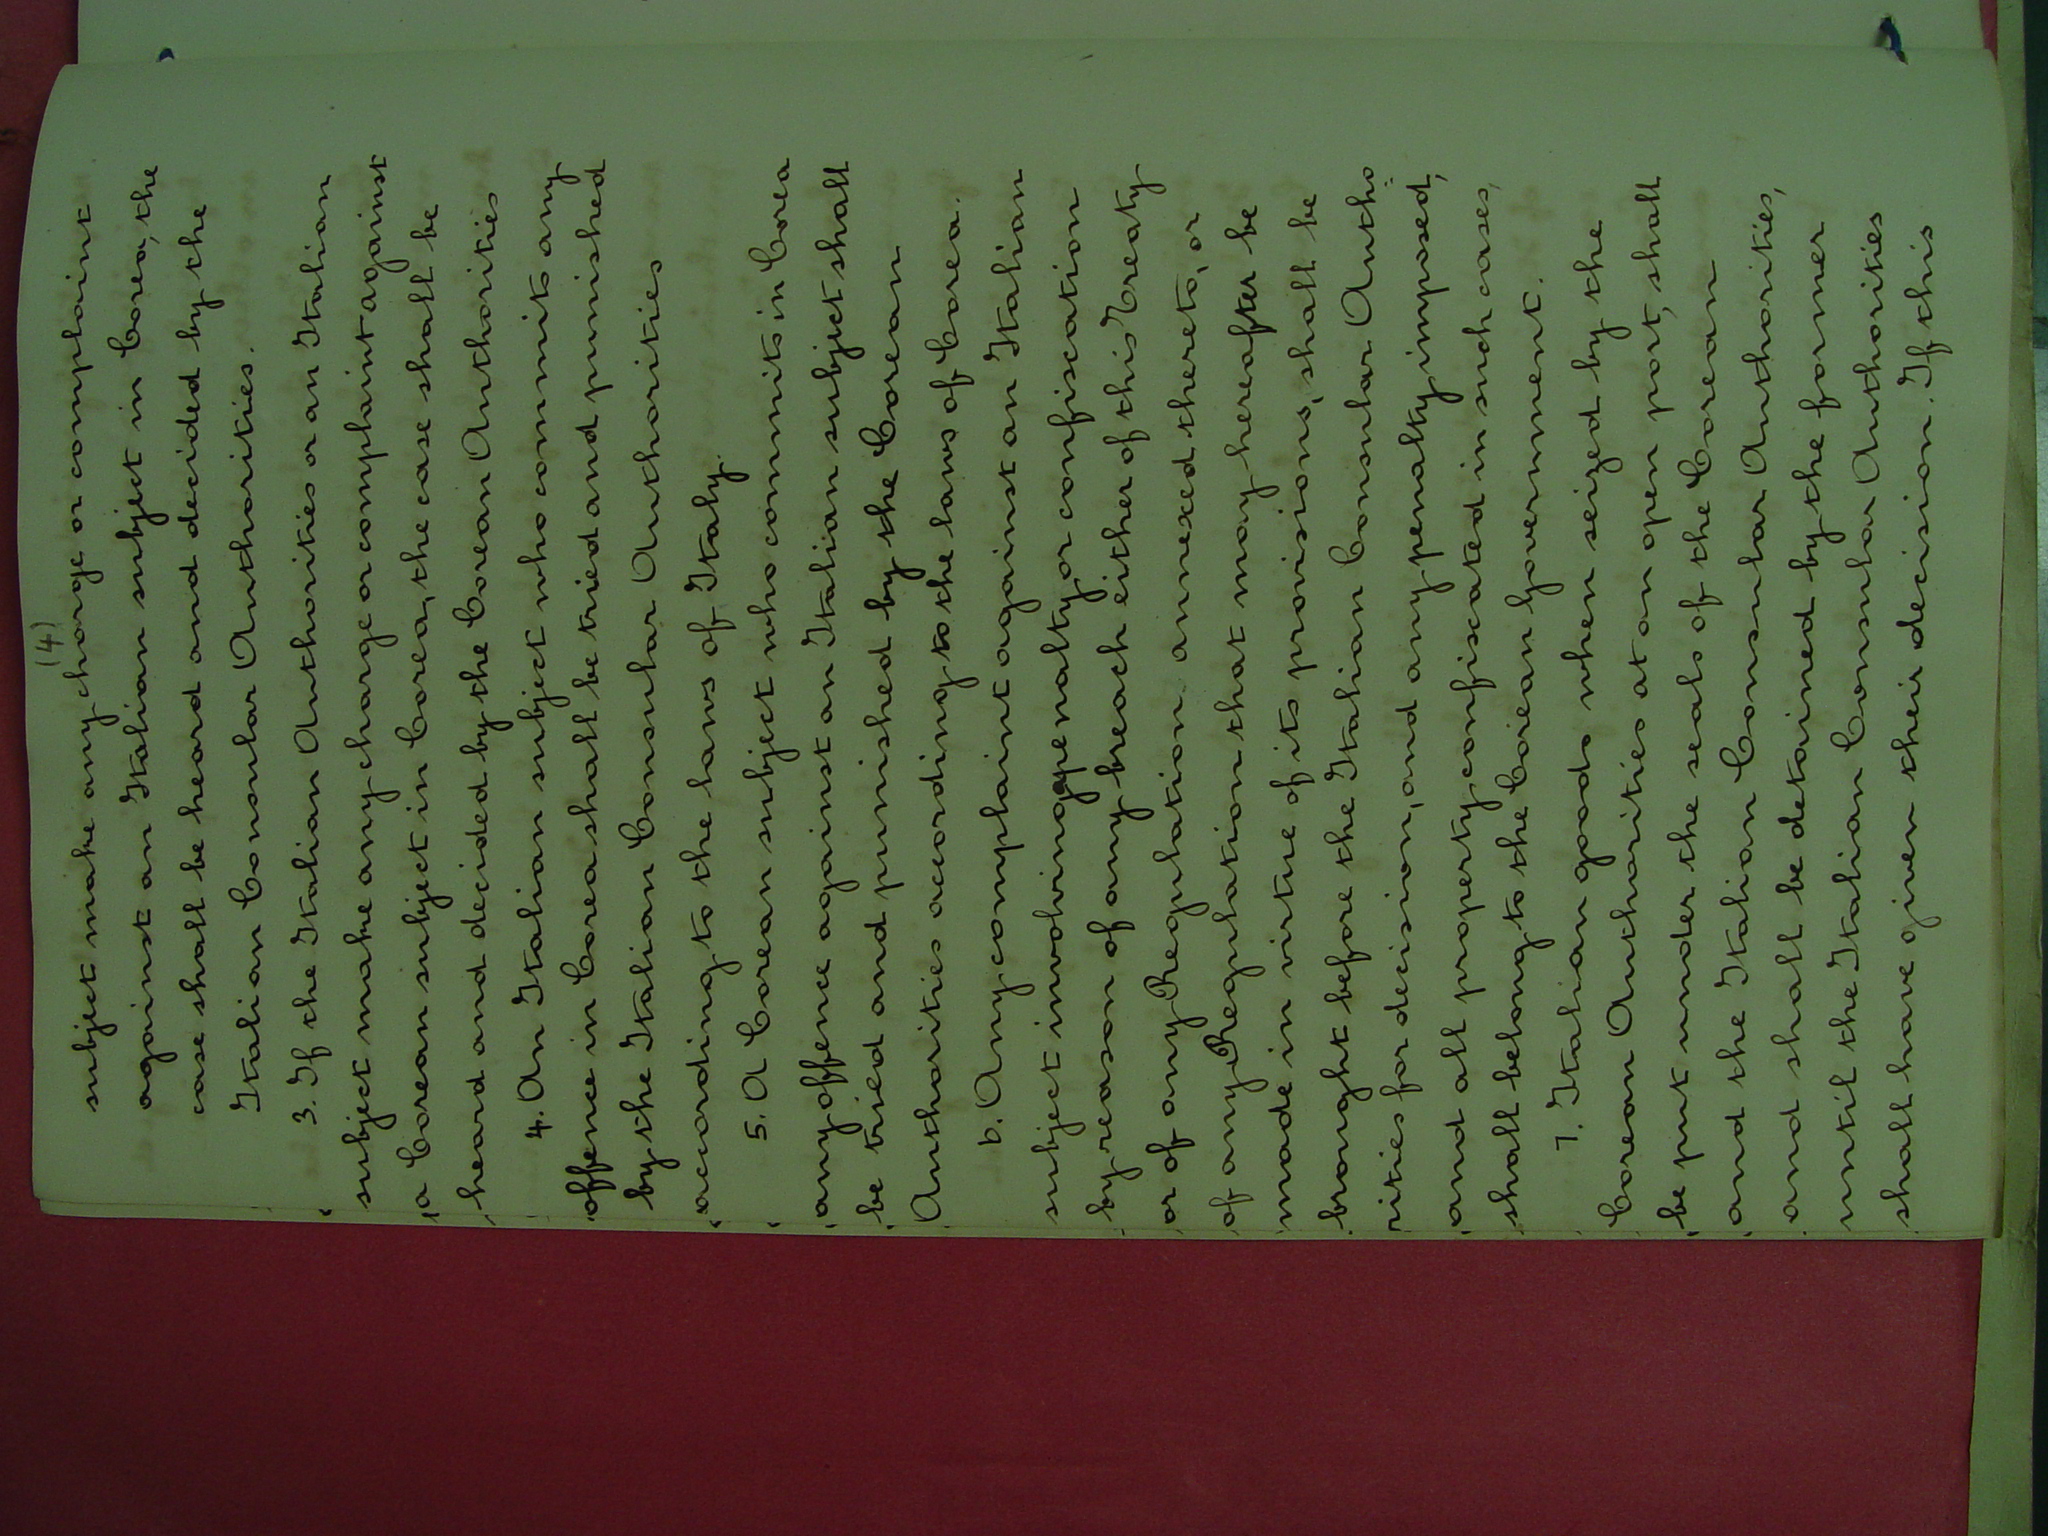 (4)
subject make any charge or complaint
against an Italian subject in Corea, the
case shall be heard and decided by the
Italian Consular Authorities.
3. If the Italian Authorities or an Italian
subject make any charge or complaint against
a Corean subject in Corea, the case shall be
heard and decided by the Corean Authorities
4. An Italian subject who commits any
offence in Corea shall be tried and punished
by the Italian Consular Authorities
according to the laws of Italy.
5. A Corean subject who commits in Corea
any offence against an Italian subject shall
be tried and punished by the Corean
Authorities according to the laws of Corea.
6. Any complaint against an Italian
subject involving penalty or confiscation
by reason of any breach either of this Treaty
or of any Regulation annexed thereto, or
of any Regulation that may hereafter be
made in virtue of its provisions, shall be
brought before the Italian Consular Autho=
rities for decision, and any penalty imposed,
and all property confiscated in such cases,
shall belong to the Corean Government.
7. Italian goods when seized by the
Corean Authorities at an open port, shall
be put under the seals of the Corean
and the Italian Consular Authorities,
and shall be detained by the former
until the Italian Consular Authorities
shall have given their decision. If this